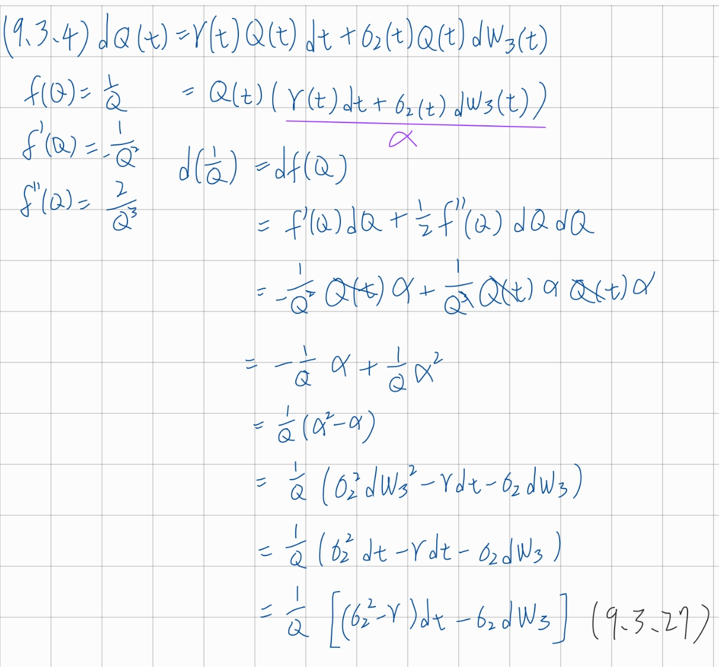 (9.3.4) dQ(t) = r(t)Q(t)dt + σ₂(t)Q(t)dW₃(t)
f(Q) = 1/Q = Q(t)(r(t)dt + σ₂(t)dW₃(t))
α
f'(Q) = -1/Q²
d(1/Q) = df(Q)
f''(Q) = 2/Q³
= f'(Q)dQ + 1/2 f''(Q) dQ dQ
= -1/Q² Q(t) α + 1/Q³ Q(t) α Q(t) α
= -1/Q α + 1/Q α²
= 1/Q (α² - α)
= 1/Q (σ₂² dW₃² - rdt - σ₂dW₃)
= 1/Q (σ₂² dt - rdt - σ₂dW₃)
= 1/Q [(σ₂² - r)dt - σ₂dW₃] (9.3.27)